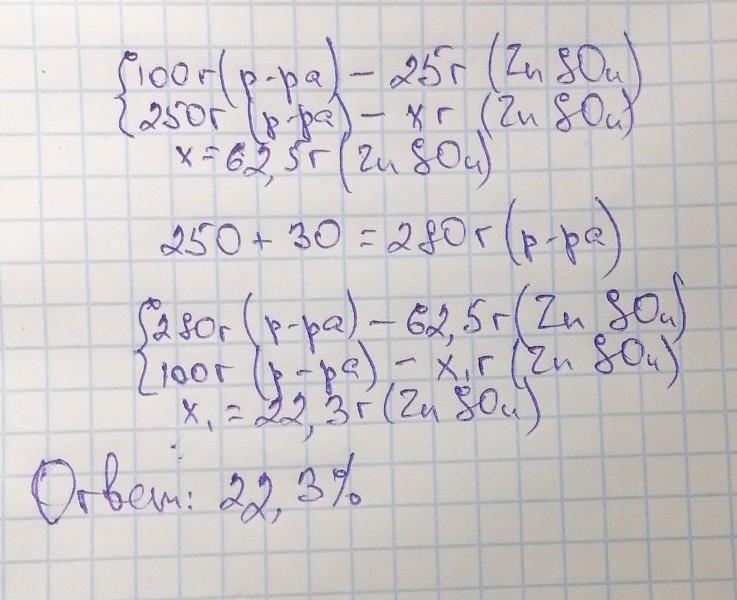 {100г (р-ра) - 25г (Zn SO₄)
{250г (р-ра) - х г (Zn SO₄)
х = 62,5г (Zn SO₄)
250 + 30 = 280г (р-ра)
{280г (р-ра) - 62,5г (Zn SO₄)
{100г (р-ра) - х₁г (Zn SO₄)
х₁ = 22,3г (Zn SO₄)
Ответ: 22,3%